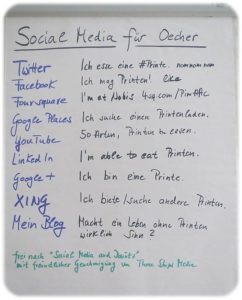 Social Media für Oecher
Twitter Ich esse eine #Printe. nomnomnom
Facebook Ich mag Printen! like
Foursquare I'm at Nobis 4sq.com/
Google Places Ich suche einen Printenladen.
YouTube 50 Arten, Printen zu essen.
LinkedIn I'm able to eat Printen.
Google+ Ich bin eine Printe.
XING Ich biete/suche andere Printen.
Mein Blog Macht ein Leben ohne Printen
wirklich Sinn?
frei nach "Social Media and Donuts"
mit freundlicher Genehmigung von Three Ships Media